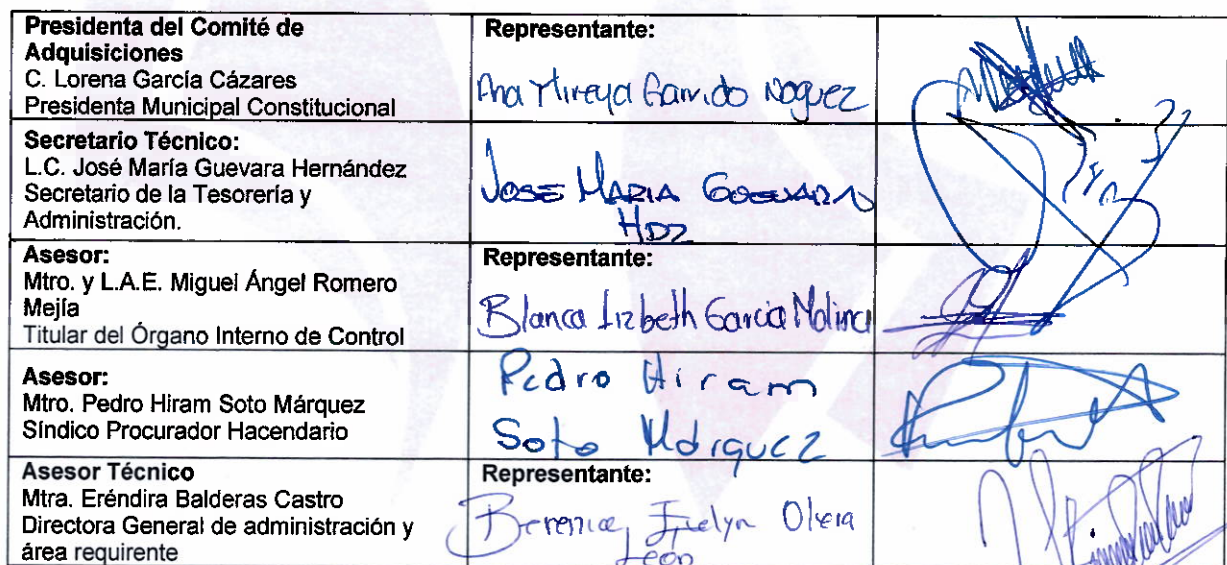 Presidenta del Comité de
Adquisiciones
C. Lorena García Cázares
Presidenta Municipal Constitucional
Representante:
Ana Mireya Garrido Noguez
Secretario Técnico:
L.C. José María Guevara Hernández
Secretario de la Tesorería y
Administración.
JOSE MARIA GUEVARA
HDZ
Asesor:
Mtro. y L.A.E. Miguel Ángel Romero
Mejía
Titular del Órgano Interno de Control
Representante:
Blanca Lizbeth Garcia Molina
Asesor:
Mtro. Pedro Hiram Soto Márquez
Síndico Procurador Hacendario
Pedro Hiram
Soto Márquez
Asesor Técnico
Mtra. Eréndira Balderas Castro
Directora General de administración y
área requirente
Representante:
Berenice Evelyn Olvera
León